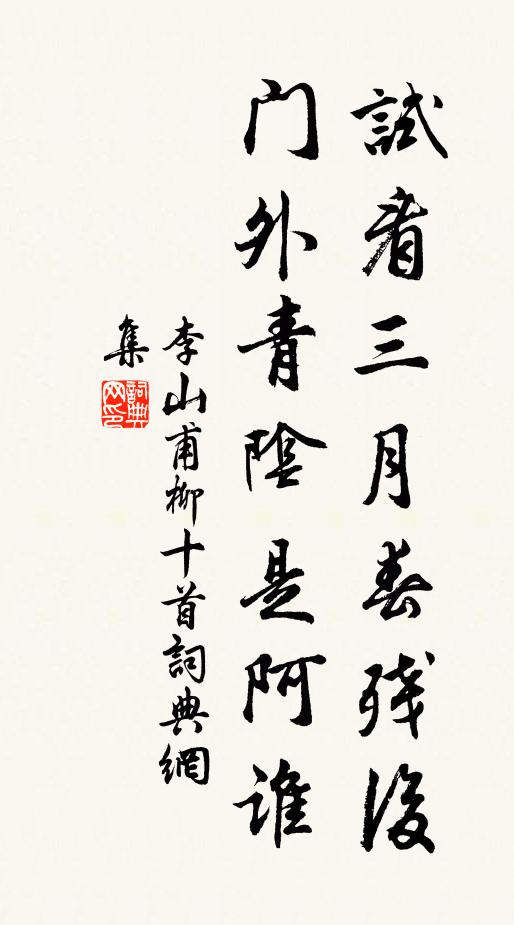 試看三月春残後
門外青陰是阿誰
李山甫柳十首詞典網
集
詞典網印